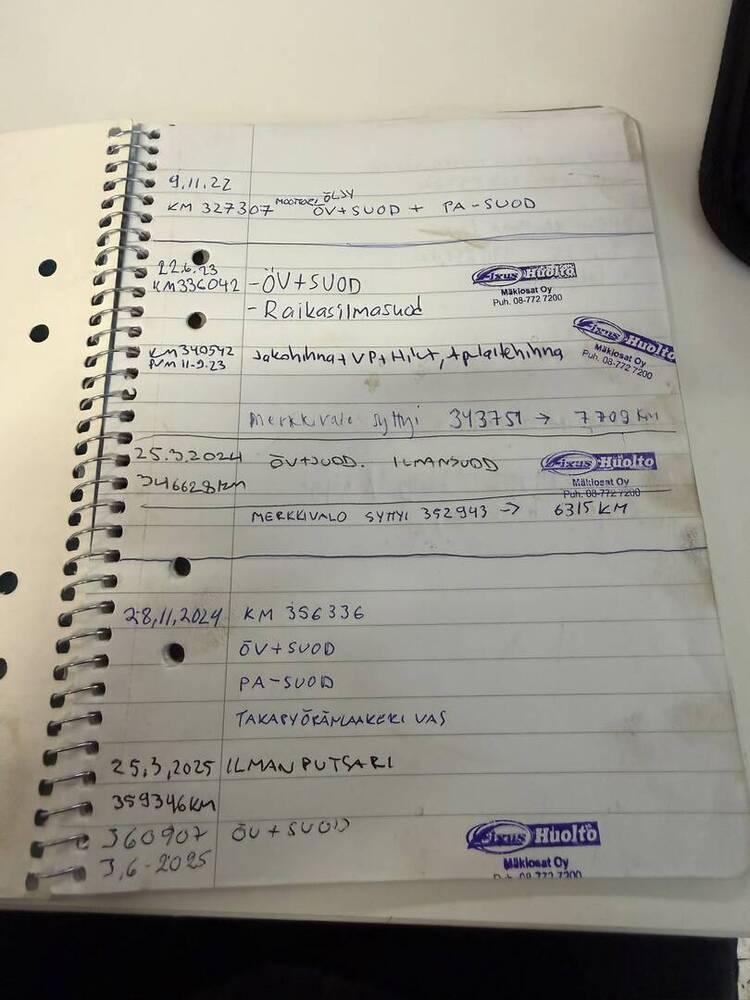 9.11.22
KM 327307 MOOTTORI ÖLJY ÖV+SUOD + PA-SUOD
22.6.23
KM336042 -ÖV+SUOD
-Raikasilmasuod
Fixus Huolto
Mäkiosat Oy
Puh. 08-772 7200
KM340542 Jakohihna+VP+Hihnat, +apulaitehihna
PVM 11-9.23
Fixus Huolto
Mäkiosat Oy
Puh. 08-772 7200
Merkkivalo syttyi 343751 → 7709 KM
25.3.2024 ÖV+SUOD. ILMANSUOD
346628KM
Fixus Huolto
Mäkiosat Oy
Puh. 08-772 7200
MERKKIVALO SYTTYI 352943 → 6315 KM
28,11,2024 KM 356336
ÖV+SUOD
PA-SUOD
TAKAPYÖRÄNLAAKERI VAS
25,3,2025 ILMANPUTSARI
359346KM
360907 ÖV+SUOD
3,6-2025
Fixus Huolto
Mäkiosat Oy
08-772 7200